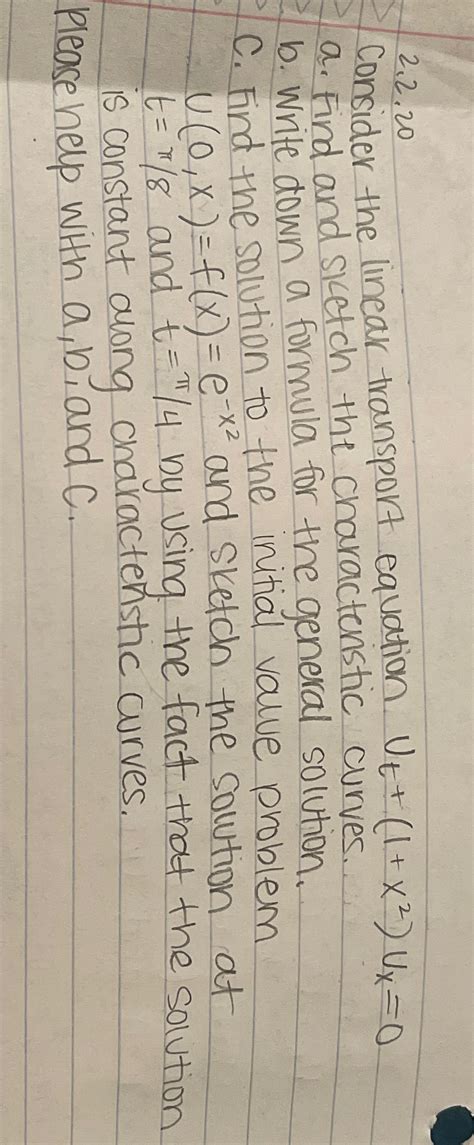 2.2.20
Consider the linear transport equation Ut + (1 + x²) Ux = 0
a. Find and sketch the characteristic curves.
b. Write down a formula for the general solution.
C. Find the solution to the initial value problem
U(0, x) = f(x) = e^-x² and sketch the solution at
t = π/8 and t = π/4 by using the fact that the solution
is constant along characteristic curves.
please help with a, b, and C.